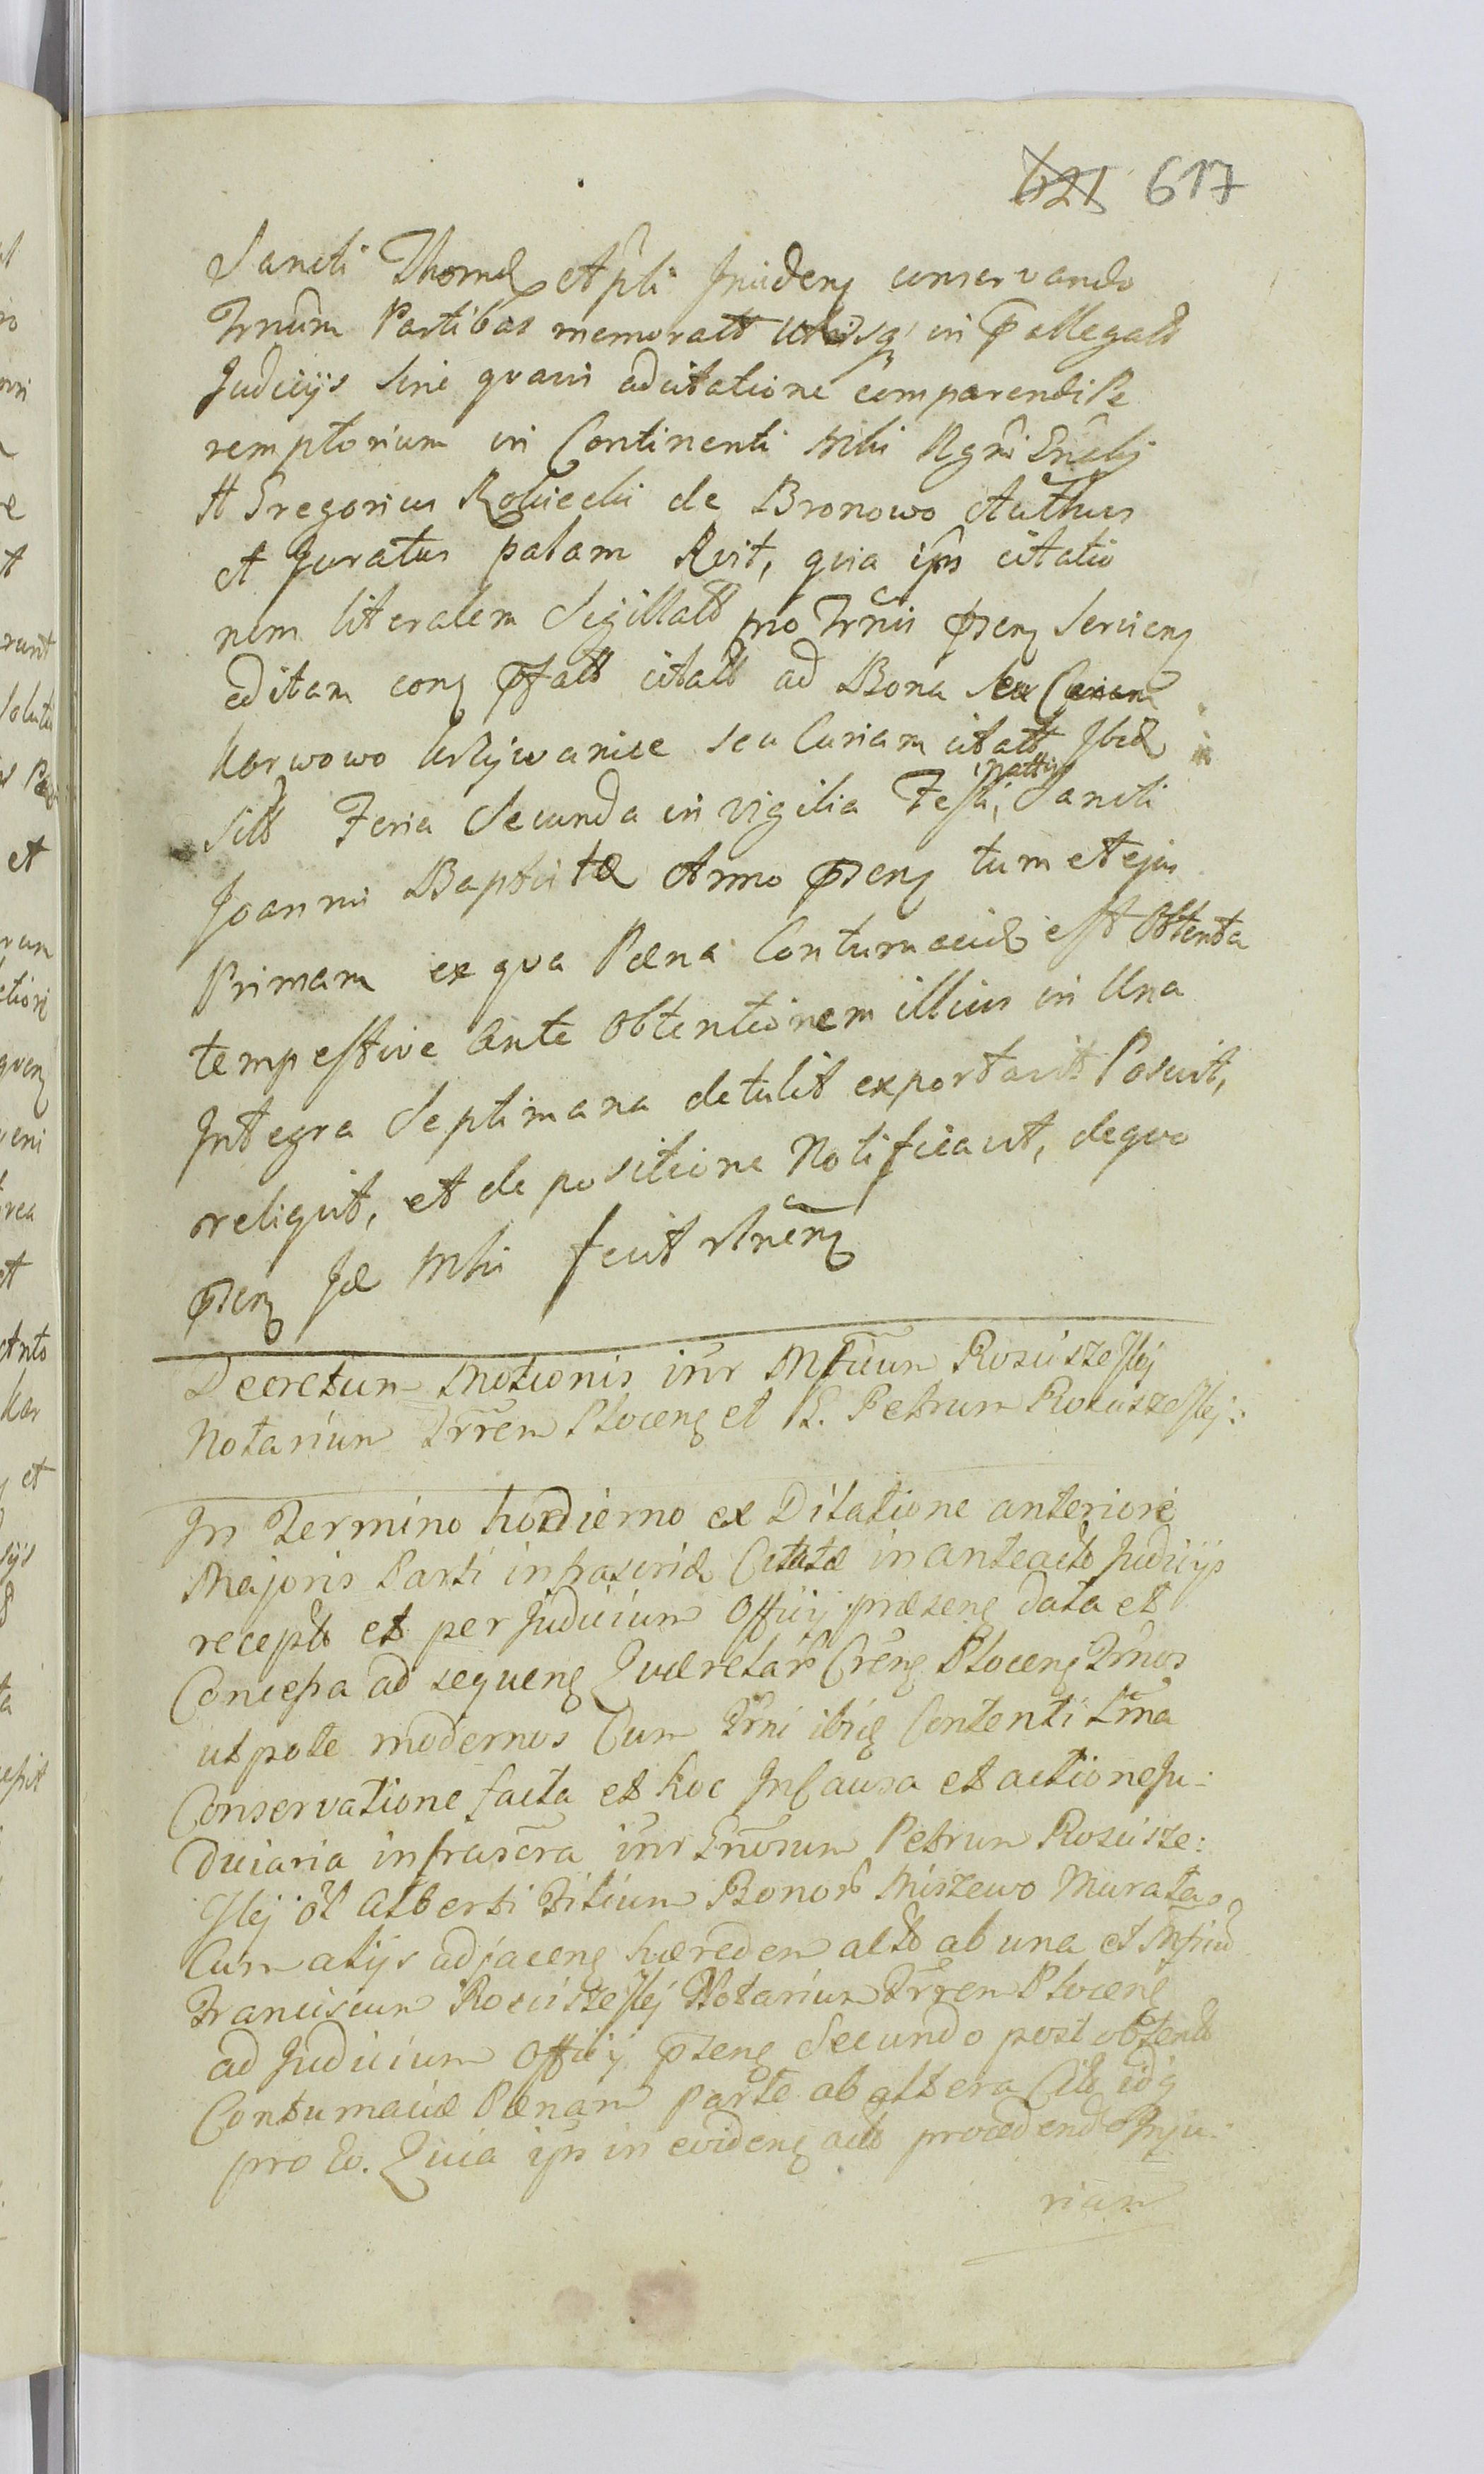 621 617
Sancti Thomæ Apli Inciden conservando
Trnum Partibus memoratt utrisq in pallegatt
Judicijs Sine quavis adcitatione comparendi Pe
remptorium in Continenti Mti Rgni Gnalij
H Gregorius Robiecki de Bronowo Authus
et Juratus palam Rvit, quia ips citatio
nem literalem Sigillatt pro Trnis psen Servien
editam con pfatt citatt ad Bona seu Curiam
Karwowo Krzywanice seu Curiam citatt Ibid
Sitt Feria Secunda in vigilia Festi natti Sancti
Joannis Baptistæ Anno psen tum et ejus
Primam ex qva Pæna Contumaciæ est Obtenta
tempestive ante Obtentionem illius in Una
Integra Septimana detulit exportavit Posuit,
reliquit, et de positione Notificavit, de quo
psen Jæ Mti fecit rlnen
Decretum Motionis intr Mficum Rosciszeski
Notarium Trrem Plocen et G. Petrum Rosciszeski:
In Termino hodierno ex Dilatione anteriori
Majoris Parti infrascriæ Citatæ in anteactt Judicijs
receptt et per Judicium Officij præsens data et
Concessa ad sequens Querelarr Cren Plocen Trnos
utpote modernos Cum Trni ibid Contenti Lrma
Conservatione facta et hoc In Causa et actione Ju:
diciaria infrascra intr Gnosum Petrum Roscisze:
ski ol Alberti Filium Bonorr Miszewo Murata
Cum alijs adjacen hæredem actt ab una et Mficum
Franciscum Rosciszeski Notarium Trrem Plocen
ad Judicium Officij psens Secundo post obtentt
Contumaciæ Pænam parte ab altera Citt idq
pro Eo. Quia ips in eviden actt procedendo Inju:
riam